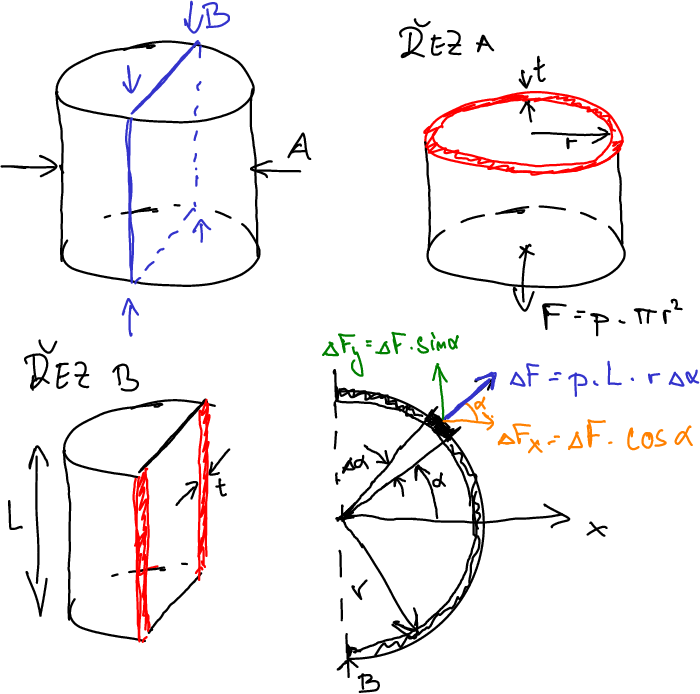 B
A
ŘEZ A
t
r
F = p · πr²
ŘEZ B
L
t
ΔFy = ΔF · sinα
ΔF = p · L · r Δα
α
ΔFx = ΔF · cosα
Δα
α
x
r
B